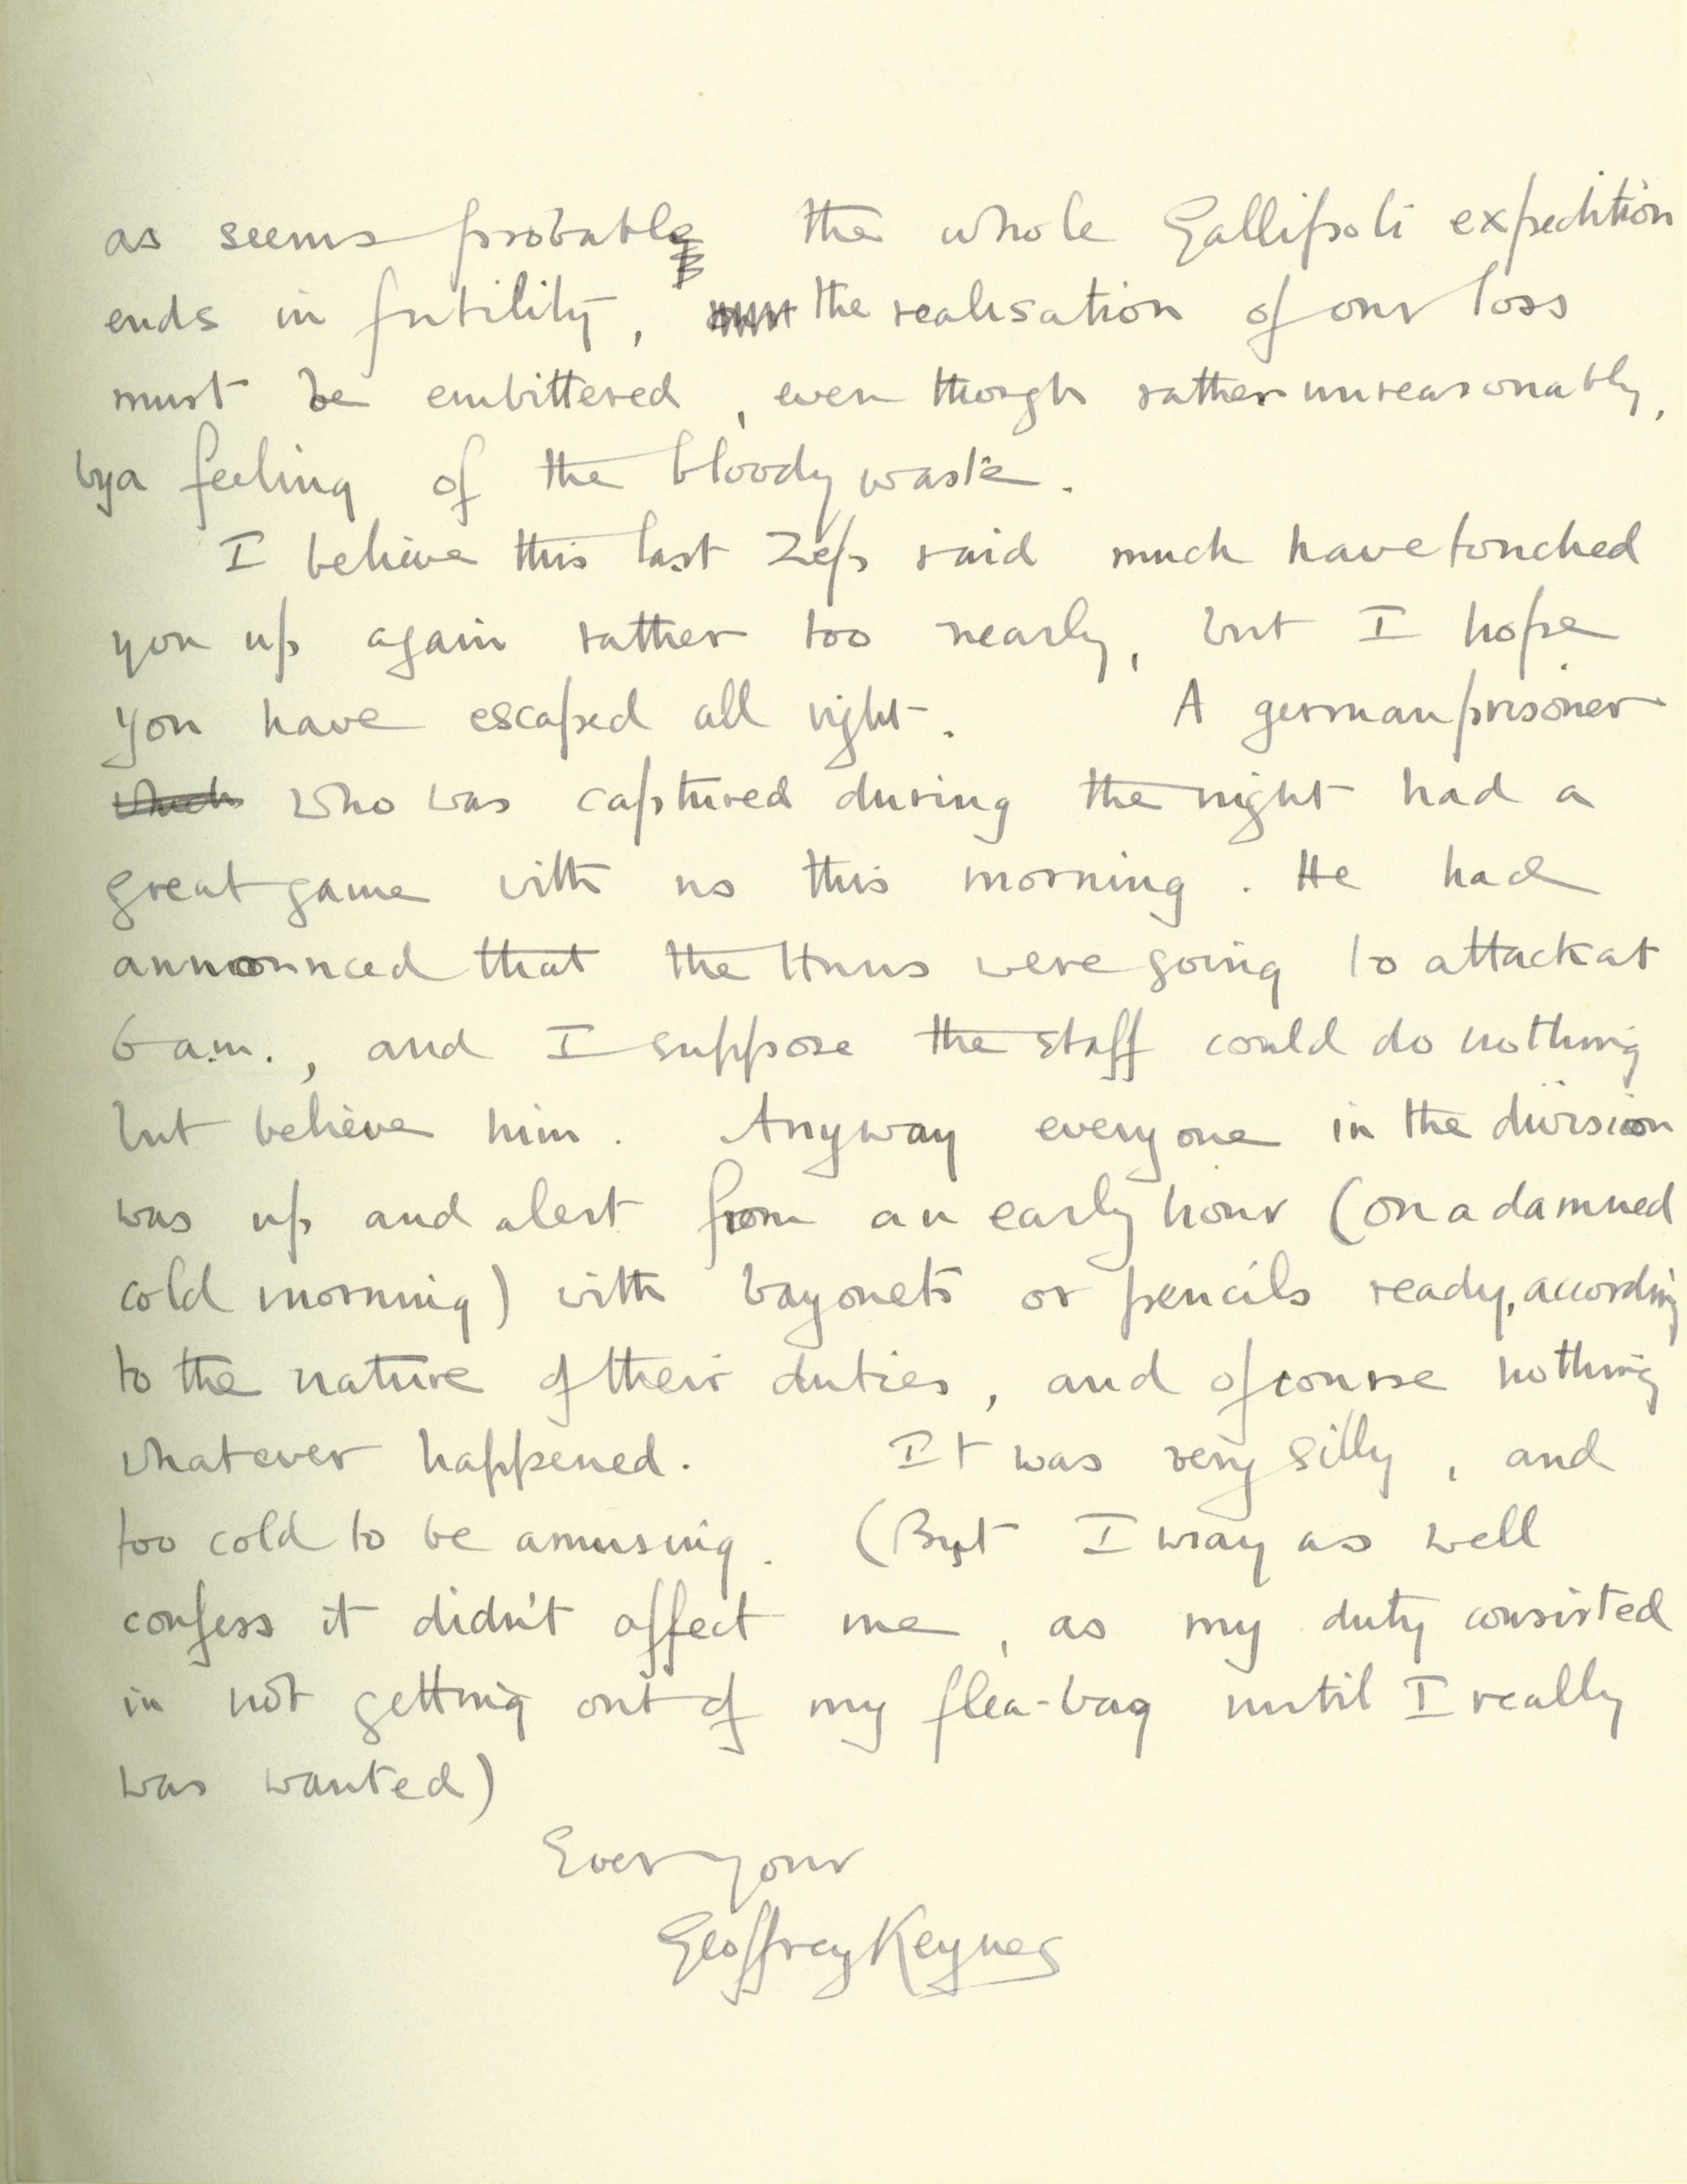 as seems probable the whole Gallipoli expedition
ends in futility, the realisation of our loss
must be embittered, even though rather unreasonably,
by a feeling of the bloody waste.
I believe this last Zep raid much have touched
you up again rather too nearly, but I hope
you have escaped all right. A german prisoner
which who was captured during the night had a
great game with us this morning. He had
announced that the Huns were going to attack at
6 a.m., and I suppose the staff could do nothing
but believe him. Anyway everyone in the division
was up and alert from an early hour (on a damned
cold morning) with bayonets or pencils ready, according
to the nature of their duties, and of course nothing
whatever happened. It was very silly, and
too cold to be amusing. (But I may as well
confess it didn't affect me, as my duty consisted
in not getting out of my flea-bag until I really
was wanted)
Ever your
Geoffrey Keynes